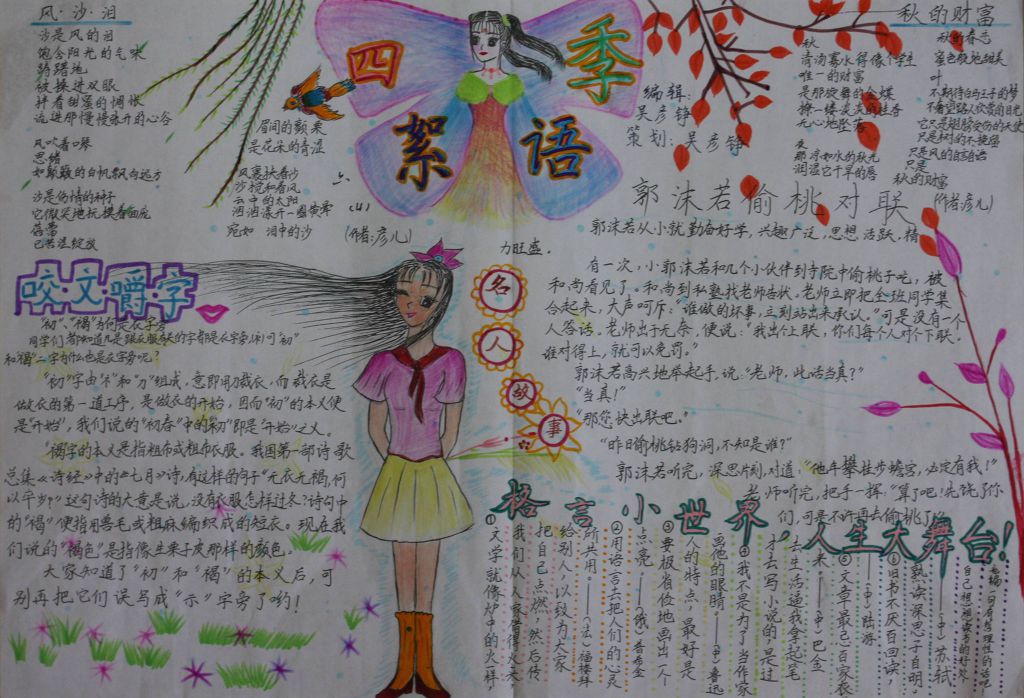 风·沙·泪
沙是风的泪
饱含阳光的气味
踌躇地
被揉进双眼
拌着甜蜜的惆怅
流进那慢慢张开的心谷
风吹着口琴
思绪
如飘飘的白帆飘向远方
沙是伤情的种子
它微笑地抚摸着面庞
蓓蕾
已苦涩绽放
眉间的颤栗
是花朵的青涩
风裹挟着沙
沙搅和着风
云中的太阳
宛如 泪中的沙
(作者:彦儿)
四季
絮语
编辑:
吴彦铮
策划:吴彦铮
秋的财富
秋
青滴露水得像个学生
唯一的财富
是那旋舞的金蝶
撩一缕淡淡的桂香
无心地坠落
夜
那河如水的秋光
润湿它干旱的唇
秋的眷恋
蜜色般地甜美
叶
不期待白马王子的梦
不奢望路人欣赏的目光
它只是翅膀受伤的天使
只是树的不挽留
只是风的自言自语
只是
秋的财富
(作者:彦儿)
郭沫若偷桃对联
郭沫若从小就勤奋好学,兴趣广泛,思想活跃,精
力旺盛。
有一次,小郭沫若和几个小伙伴到寺院中偷桃子吃,被
和尚看见了。和尚到私塾找老师告状。老师立即把全班同学集
合起来,大声呵斥:“谁做的坏事,立刻站出来承认。”可是没有一个
人答话。老师出于无奈,便说:“我出个上联,你们每个人对个下联。
谁对得上,就可以免罚。”
郭沫若高兴地举起手,说:“老师,此话当真?”
“当真!”
“那您快出联吧。”
“昨日偷桃钻狗洞,不知是谁?”
郭沫若听完,深思片刻,对道:“他年攀桂步蟾宫,必定有我!”
老师听完,把手一挥:“算了吧!先饶了你
们,可是不许再去偷桃了
名
人
故
事
咬·文·嚼·字
“初”、“褐”为何是衣字旁
同学们都知道凡是跟衣服有关的字都是衣字旁(衤)可“初”
和“褐”一字为什么也是衣字旁呢?
“初”字由“衤”和“刀”组成,意即用刀裁衣,而裁衣是
做衣的第一道工序,是做衣的开始,因而“初”的本义便
是“开始”,我们说的“初春”中的“初”即是“开始”之义。
“褐”字的本义是指粗布或粗布衣服。我国第一部诗歌
总集《诗经》中的《七月》诗,有这样的句子“无衣无褐,何
以卒岁?”这句诗的大意是说,没有衣服怎样过冬?诗句中
的“褐”便指用兽毛或粗麻编织成的短衣。现在我
们说的“褐色”是指像生栗子皮那样的颜色。
大家知道了“初”和“褐”的本义后,可
别再把它们误写成“示”字旁了哟!
格言小世界,人生大舞台!
①文学就像炉中的火一样,
我们从人家借得火来,
把自己点燃,然后传
给别人,以致为大家
所共用。——(法)福楼拜
②用语言去把人们的心灵
点亮——(俄)普希金
③要极省俭地画出一个
人的特点,最好是
画他的眼睛——(中)鲁迅
④我不是为了当作家
才去写小说的,是过
去生活逼我拿起笔
来——(中)巴金
⑤文章最忌百家衣
——(中)陆游
⑥旧书不厌百回读,
熟读深思子自明
——(中)苏轼